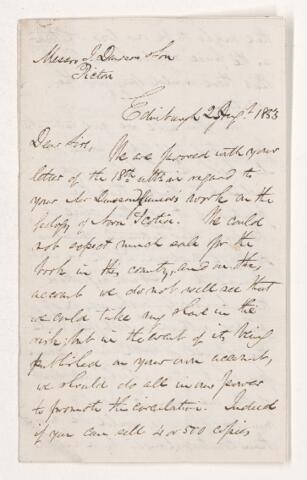 Messrs J. Dawson & Son
Pictou
Edinburgh 2 Augt 1853
Dear Sirs,
We are favored with your
letter of the 18th ulto in regard to
your Mr Dawson Junior's work on the
Geology of Nova Scotia. We could
not expect much sale for the
book in this country, and on this
account we do not well see that
we could take any share in the
risk; but in the event of its being
published on your own account,
we should do all in our power
to promote the circulation. Indeed
if you can sell 4 or 500 copies